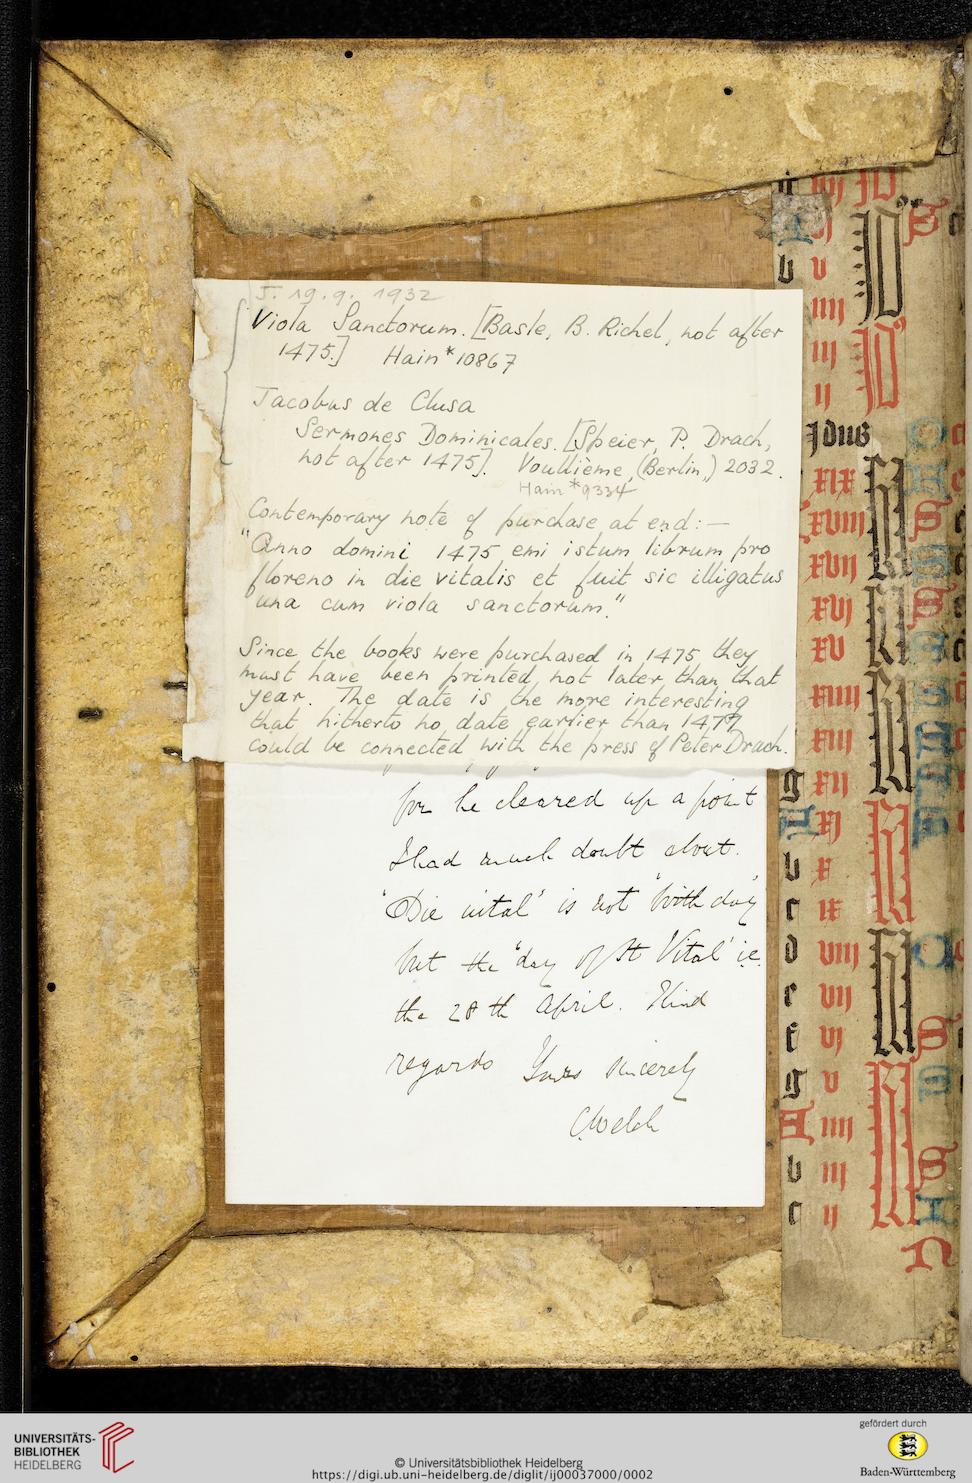 J. 19.9. 1932
Viola Sanctorum. [Basle, B. Richel, not after
1475.] Hain*10867
Jacobus de Clusa
Sermones Dominicales. [Speier, P. Drach,
not after 1475]. Voullième (Berlin) 2032.
Hain*9334
Contemporary note of purchase at end:—
"Anno domini 1475 emi istum librum pro
floreno in die vitalis et fuit sic illigatus
una cum viola sanctorum."
Since the books were purchased in 1475 they
must have been printed not later than that
year. The date is the more interesting
that hitherto no date earlier than 1477
could be connected with the press of Peter Drach.
for he cleared up a point
I had much doubt about.
'Die vital' is not 'birth day'
but the 'day of St Vital' i.e.
the 28th April. Kind
regards Yours sincerely
C. Welch
b v
iiii
iii
ii
Idus
xix
xviii
xvii
xvi
xv
xiiii
xiii
g xii
A xi
b x
c ix
d viii
e vii
f vi
g v
A iiii
b iii
c ii
UNIVERSITÄTS-
BIBLIOTHEK
HEIDELBERG
© Universitätsbibliothek Heidelberg
https://digi.ub.uni-heidelberg.de/diglit/ij00037000/0002
gefördert durch
Baden-Württemberg